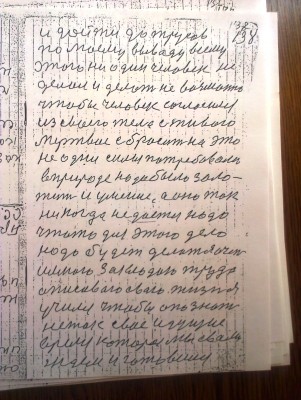 138
и дойти до трусов
по моему выводу всему
этого ни один человек не
делал и делат не возможно
чтобы человек согласился
из своего тела с живого
мертвае сбросит на это
не одни силы потребовали
в природе надо было золо-
тит и умение, а оно так
никогда не дается надо
что то для этого дело
надо будет делат
много заводного труда
описаваго своего жизня
учили чтобы опознат
нетак свое идущие
время которое мы свали
и готовому